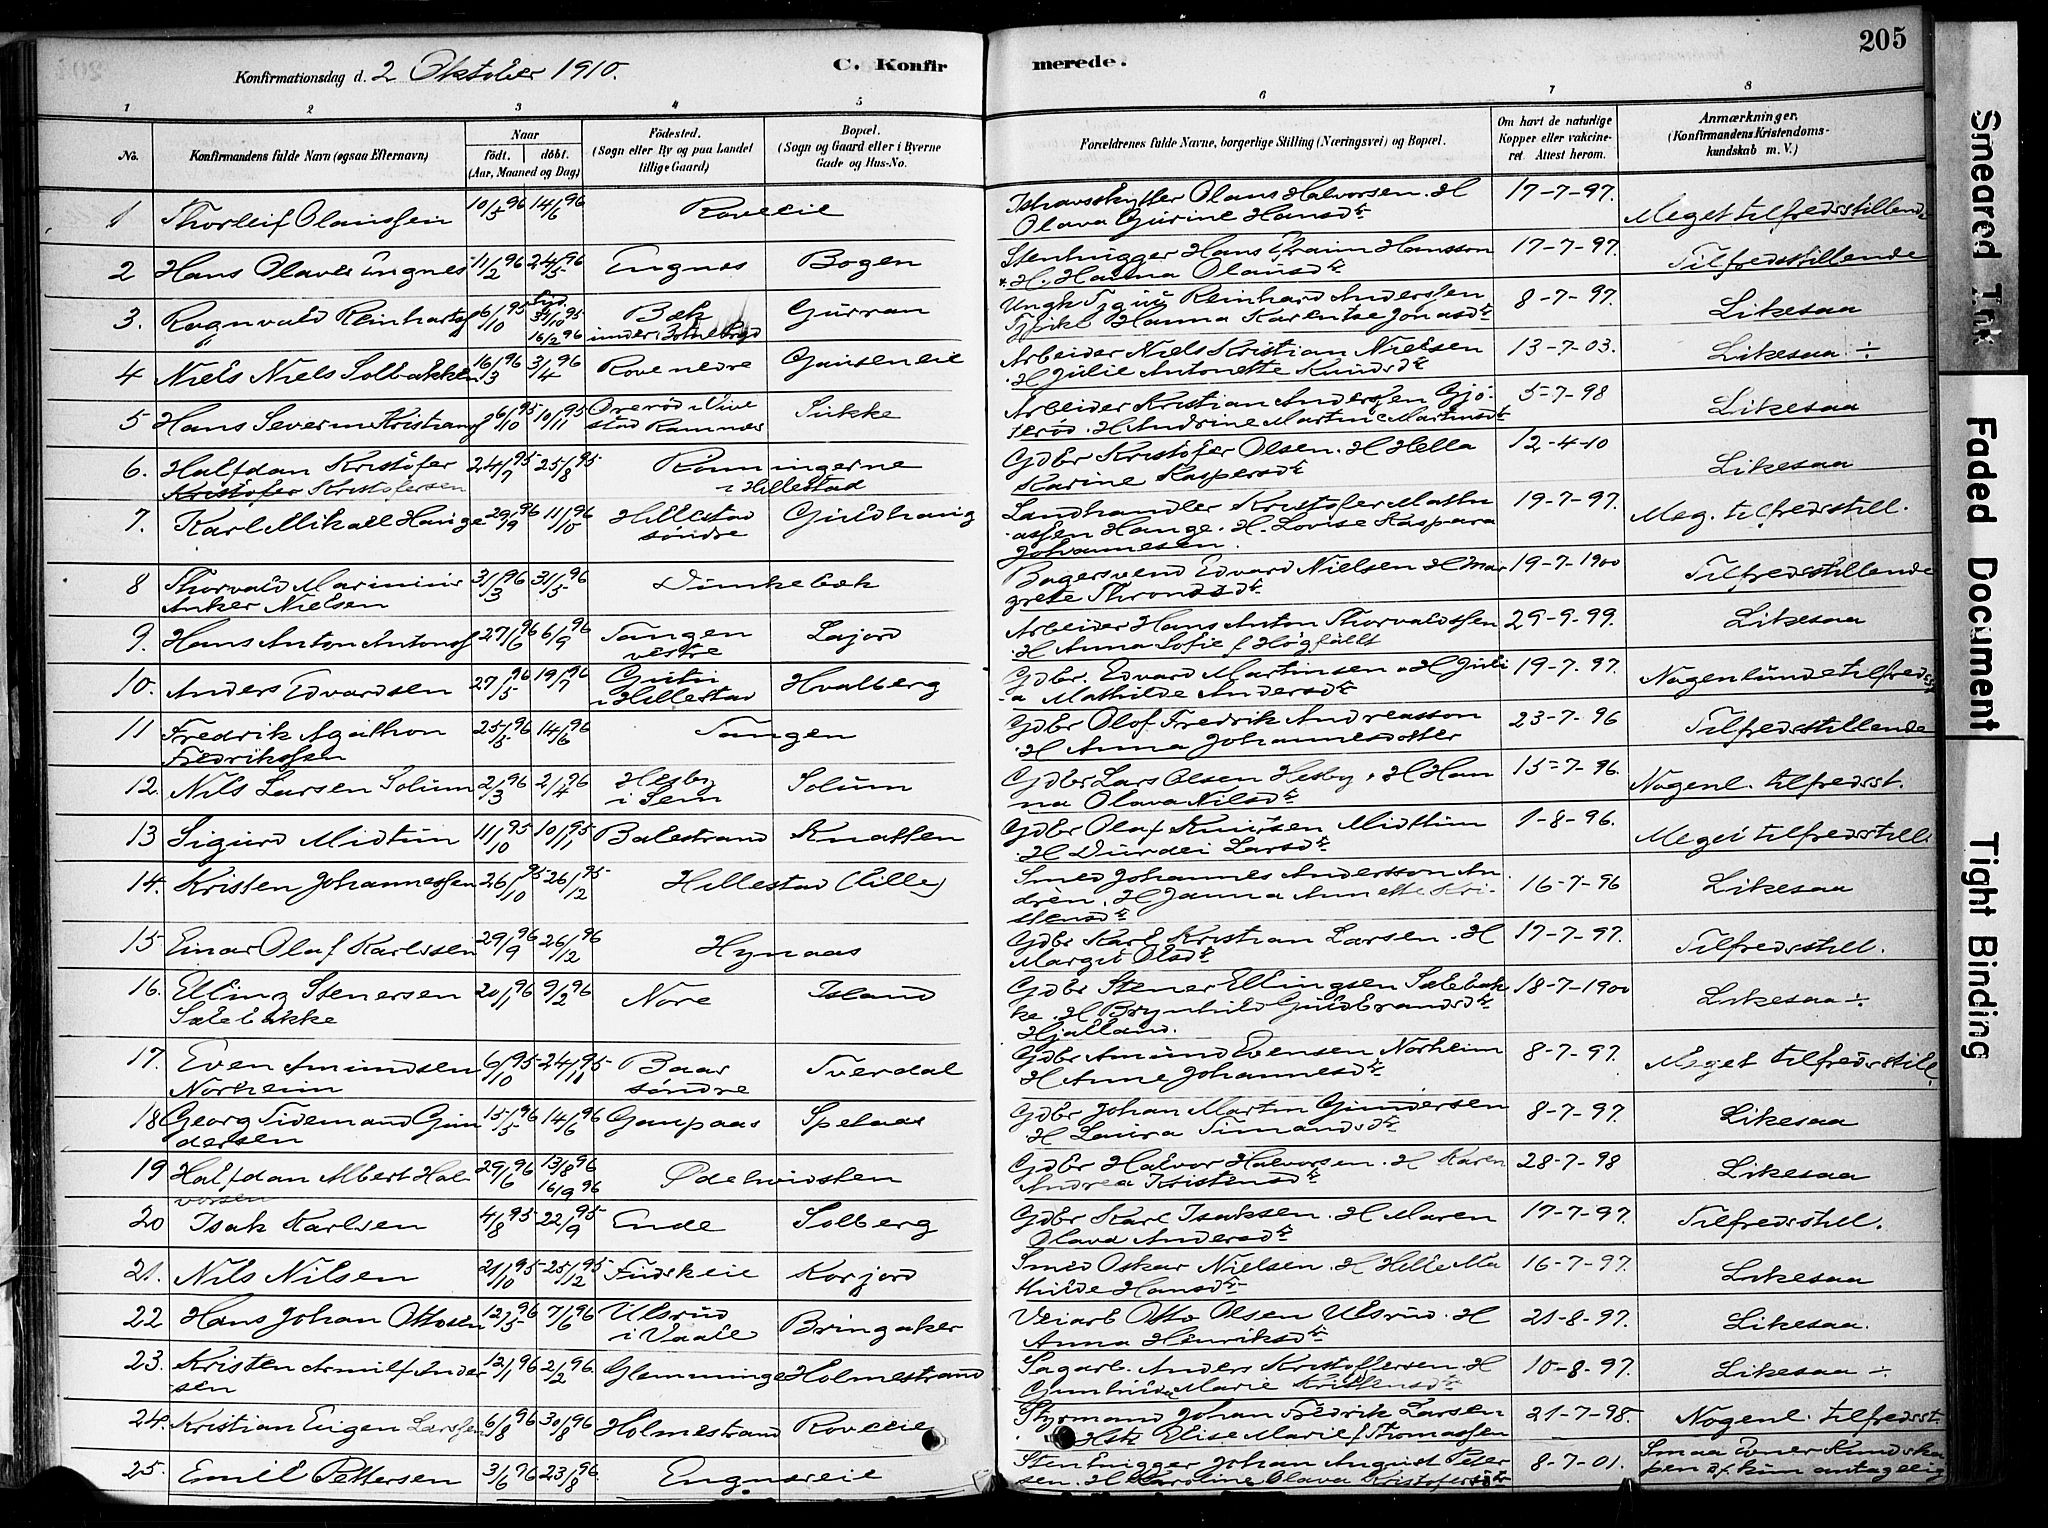 205
Konfirmationsdag d. 2 Oktober 1910.
C. Konfirmerede.
1 2 3 4 5 6 7 8
No.
Konfirmandens fulde Navn (ogsaa Efternavn)
Naar
født. døbt.
(Aar, Maaned og Dag)
Fødested.
(Sogn eller By og paa Landet
tillige Gaard)
Bopæl.
(Sogn og Gaard eller i Byerne
Gade og Hus-No.
Forældrenes fulde Navne, borgerlige Stilling (Næringsvei) og Bopæl.
Om havt de naturlige
Kopper eller vakcine-
ret. Attest herom.
Anmærkninger,
(Konfirmandens Kristendoms-
kundskab m. V.)
1 Thorleif Olaussen 10/5 96 14/6 96 Roveeie Ishavsskytter Olaus Halvorsen. H 17-7-97. Meget tilfredsstillende
Olava Gurine Hansdtr
2 Hans Olaves Engnes 11/2 96 24/5 96 Engnes Bogen Stenhugger Hans Efraim Hansson 17-7-97. Tilfredsstillende
H. Hanna Olausdtr
3. Rognvald Reinhartsf 6/10 95 16/2 96 Bæk Gurran Ungk. Reinhard Anderssen 8-7-97. Likesaa
under Pike Hanna Karentse Jonasdtr
4 Niels Niels Solbakken 16/3 96 3/4 96 Rove nedre Gauseneie Arbeider Niels Kristian Nielsen 13-7-03. Likesaa ÷
H Julie Antonette Knudsdtr
5 Hans Severin Kristiansf 6/10 95 10/11 95 Orerød i Vive Sukke Arbeider Kristian Anderssen Gjø- 5-7-98 Likesaa
stad Ramnæs terød. H Andrine Martine Martinsdtr
6. Halfdan Kristofer 24/7 95 25/8 95 Rønningerne Gdbr Kristofer Olsen. H Hella 12-4-10 Likesaa
Kristofer Kristofersen i Hillestad Karine Kaspersdtr
7. Karl Mikael Hauge 29/9 96 11/10 96 Hillestad Guldhaug Landhandler Kristofer Mathi 19-7-97. Meg. tilfredsstill.
søndre assen Hauge. H. Lovise Kaspara
Johannesen.
8 Thorvald Marinius 31/3 96 31/5 96 Dunkebæk Bagersvend Edvard Nielsen H Mar 19-7-1900 Tilfredsstillende
Anker Nielsen grete Throndsdtr
9. Hans Anton Antonsf 27/6 96 6/9 96 Tangen Lajord Arbeider Hans Anton Thorvaldssen 29-9-99. Likesaa
vestre H Anna Sofie f Högfällt
10. Anders Edvardsen 27/5 96 19/7 96 Hvalberg Gdbr. Edvard Martinsen H Juli 19-7-97. Nogenlunde tilfredsst
i Hillestad a Mathilde Andersdtr
11 Fredrik Agathon 25/5 96 14/6 96 Tangen Gdbr Olof Fredrik Andreasson 23-7-96 Tilfredsstillende
Fredrikssen H Anna Johannesdotter
12. Nils Larsen Solum 2/3 96 2/4 96 Hesby Solum Gdbr Lars Olsen Hesby. H Han 15-7-96. Nogenl. tilfredsst.
i Sem na Olava Nilsdtr
13 Sigurd Midtun 11/10 95 10/11 95 Balestrand Knatten Gdbr Olaf Knutsen Midttun 1-8-96. Meget tilfredsstill
H Durdei Larsdtr
14. Kristen Johannessen 26/10 95 26/12 95 Hillestad (Lille) Smed Johannes Andersson An 16-7-96 Likesaa
drén. H Janna Annette Kri-
stensdtr
15 Einar Olaf Karlssen 29/9 96 26/12 96 Hynaas Gdbr Karl Kristian Larsen. H 17-7-97. Tilfredsstill.
Margit Olsdtr
16. Elling Stenersen 20/1 96 9/2 96 Nore Island Gdbr Stener Ellingsen Sælebak 18-7-1900 Likesaa ÷
Sælebakke ke. H Brynhild Guldbrandsdtr
Hjalland.
17. Even Amundsen 6/10 95 24/11 95 Baar Tverdal Gdbr Amund Evensen Norheim 8-7-97. Meget tilfredsstill
Norheim søndre H Anne Johannesdtr
18 Georg Tidemand Gun 15/5 96 14/6 96 Gaupaas Gdbr Johan Martin Gundersen 8-7-97. Likesaa
dersen H Laura Timandsdtr
19 Halfdan Albert Hal 29/6 96 13/8 96 Ødehvidsten Gdbr Halvor Halvorsen. H Karen 28-7-98 Likesaa
vorsen 16/9 96 Andrea Kristensdtr
20 Isak Karlsen 4/8 95 22/9 95 Ende Solberg Gdbr Karl Isaksen. H Maren 17-7-97. Tilfredsstill.
Olava Andersdtr
21. Nils Nilsen 21/10 95 25/12 95 Fuskeie Korjord Smed Oskar Nielsen. H Helle Ma 16-7-97. Likesaa
thilde Hansdtr
22 Hans Johan Ottosen 12/5 96 7/6 96 Ulsrud Bringaker Veiarb Otto Olsen Ulsrud. H 21-8-97. Likesaa.
i Vaale Anna Henriksdtr
23. Kristen Arnulf Ander 12/1 96 2/2 96 Glemminge Holmestrand Sagarb. Anders Kristoffersen. H 10-8-97. Likesaa ÷
sen Gunhilda Marie Kristensdtr
24. Kristian Eugen Larssen 6/8 96 30/8 96 Holmestrand Roveeie Styrmand Johan Fredrik Larsen 21-7-98. Nogenl. tilfredsst.
Hstr Elise Marie f Thomassen
25. Emil Pettersen 3/6 96 23/8 96 Engneseie Stenhugger Johan August Peter 8-7-01. Smaa Evner Kundska
sen. H Karoline Olava Kristofersdtr pen
Smeared Ink
Faded Document
Tight Binding